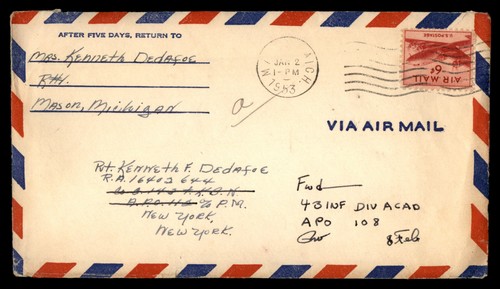 AFTER FIVE DAYS, RETURN TO
Mrs. Kenneth Dedafoe
R#4
Mason, Michigan
MICH
JAN 2
1-PM
1953
U.S. POSTAGE
AIR MAIL
6¢
a
VIA AIR MAIL
Pvt. Kenneth F. Dedafoe
R.A. 16403 644
A.P.O. 112 % P.M.
New York,
New York.
Fwd
43 INF DIV ACAD
APO 108